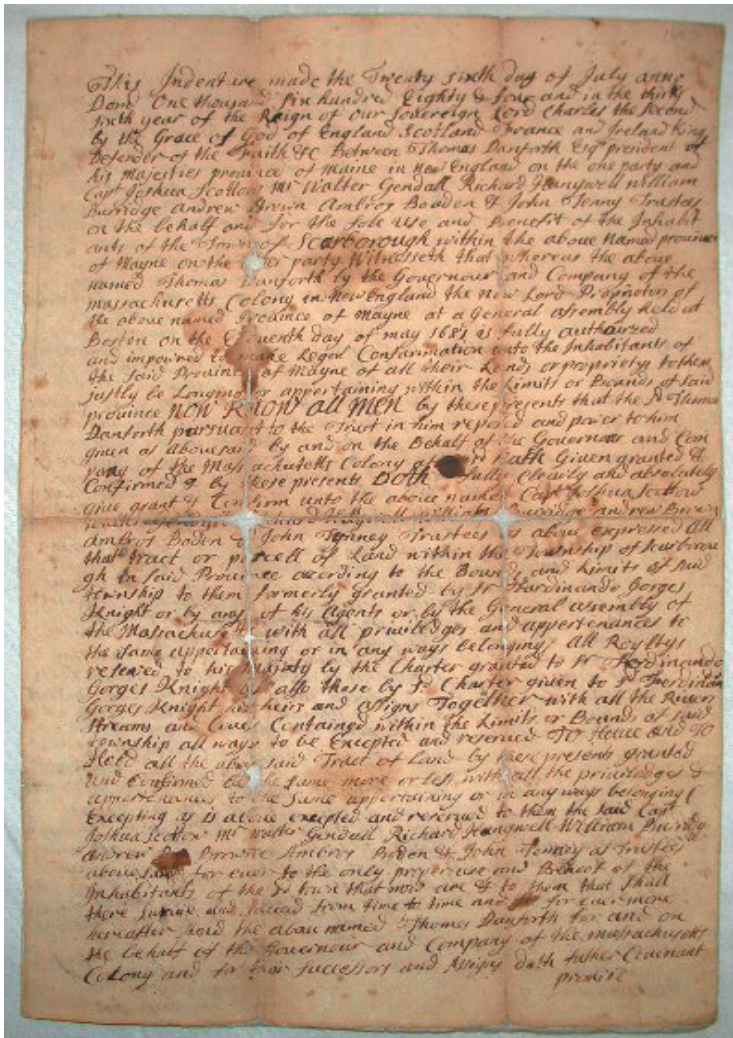 This Indenture made the Twenty sixth day of July anno
Dom One thousand Six hundred Eighty & four and in the thirty
sixth year of the Reign of our Sovereign Lord Charles the Second
by the Grace of God of England Scotland France and Ireland King
Defender of the Faith &c Between Thomas Danforth Esqr president of
his Majesties province of Maine in New England on the one party and
Capt Joshua Scottow Mr Walter Gendall Richard Hunywell William
Burridge Andrew Brown Ambros Bouden & John Tenny Trustees
on the behalf and for the sole Use and Benefit of the Inhabit
ants of the Town of Scarborough within the above Named province
of Mayne on the party Witnesseth that whereas the above
named Thomas Danforth by the Governour and Company of the
Massachusetts Colony in New England the now Lord Proprietors of
the above named Province of Mayne at a General assembly held at
Boston on the day of may 1681 is fully authorized
and impowred to make Legal Confarmation unto the Inhabitants of
the said Province of Mayne of all their Lands or propriety to them
Justly be Longing or appertaining within the Limits or Bounds of said
province NOW KNOW all MEN by these presents that the sd Thomas
Danforth pursuant to the Trust in him reposed and power to him
given as abovesaid by and on the Behalf of the Governour and Com
pany of the Massachusetts Colony Hath Given granted &
Confirmed & by these presents DOTH fully Clearly and absolutely
give grant & Confirm unto the above named Capt Joshua Scottow
William Burridge Andrew Brown
Ambros Boden & John Tenney Trustees as above expressed All
that Tract or parcell of Land within the Township of Scarborou
gh in said Province according to the Bounds and Limits of said
Township to them formerly granted by Sr Ferdinando Gorges
Knight or by any of his Agents or by the General assembly of
the Massachusets with all priviledges and appertenances to
the same appertaining or in any ways belonging All Royltys
reserved to his by the Charter granted to Sr Ferdinando
Gorges Knight also those by sd Charter given to Sr Ferdinan
Gorges Knight his heirs and assigns Together with all the Rivers
Streams and Coves Contained within the Limits or Bounds of said
Township all ways to be Excepted and reserved TO Have and TO
Hold all the above said Tract of Land by these presents granted
and Confirmed be the same more or less with all the priviledges &
appertenances to the same appertaining or in any ways belonging
Excepting as is above excepted and reserved to them the said Capt
Joshua Scottow Mr Walter Gendall Richard Hunywell William Burridg
Andrew Browne Ambros Boden & John Tenney as Trustees
above said for ever to the only proper use and Behoof of the
Inhabitants of the sd town that now are & to them that Shall
there Survive and suceed from time to time and for ever more
hereafter and the above named Thomas Danforth for and on
the behalf of the Governour and Company of the Massachusetts
Colony and for their Successors and Assigns doth further Covenant
promise